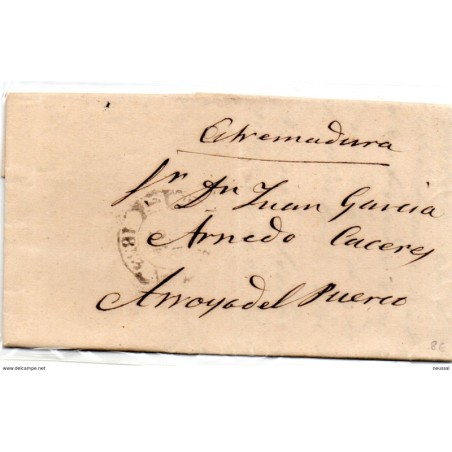 Estremadura
Sr. Dn Juan Garcia
Arnedo Caceres
Arroyo del Puerco
8€
www.delcampe.net
neussal